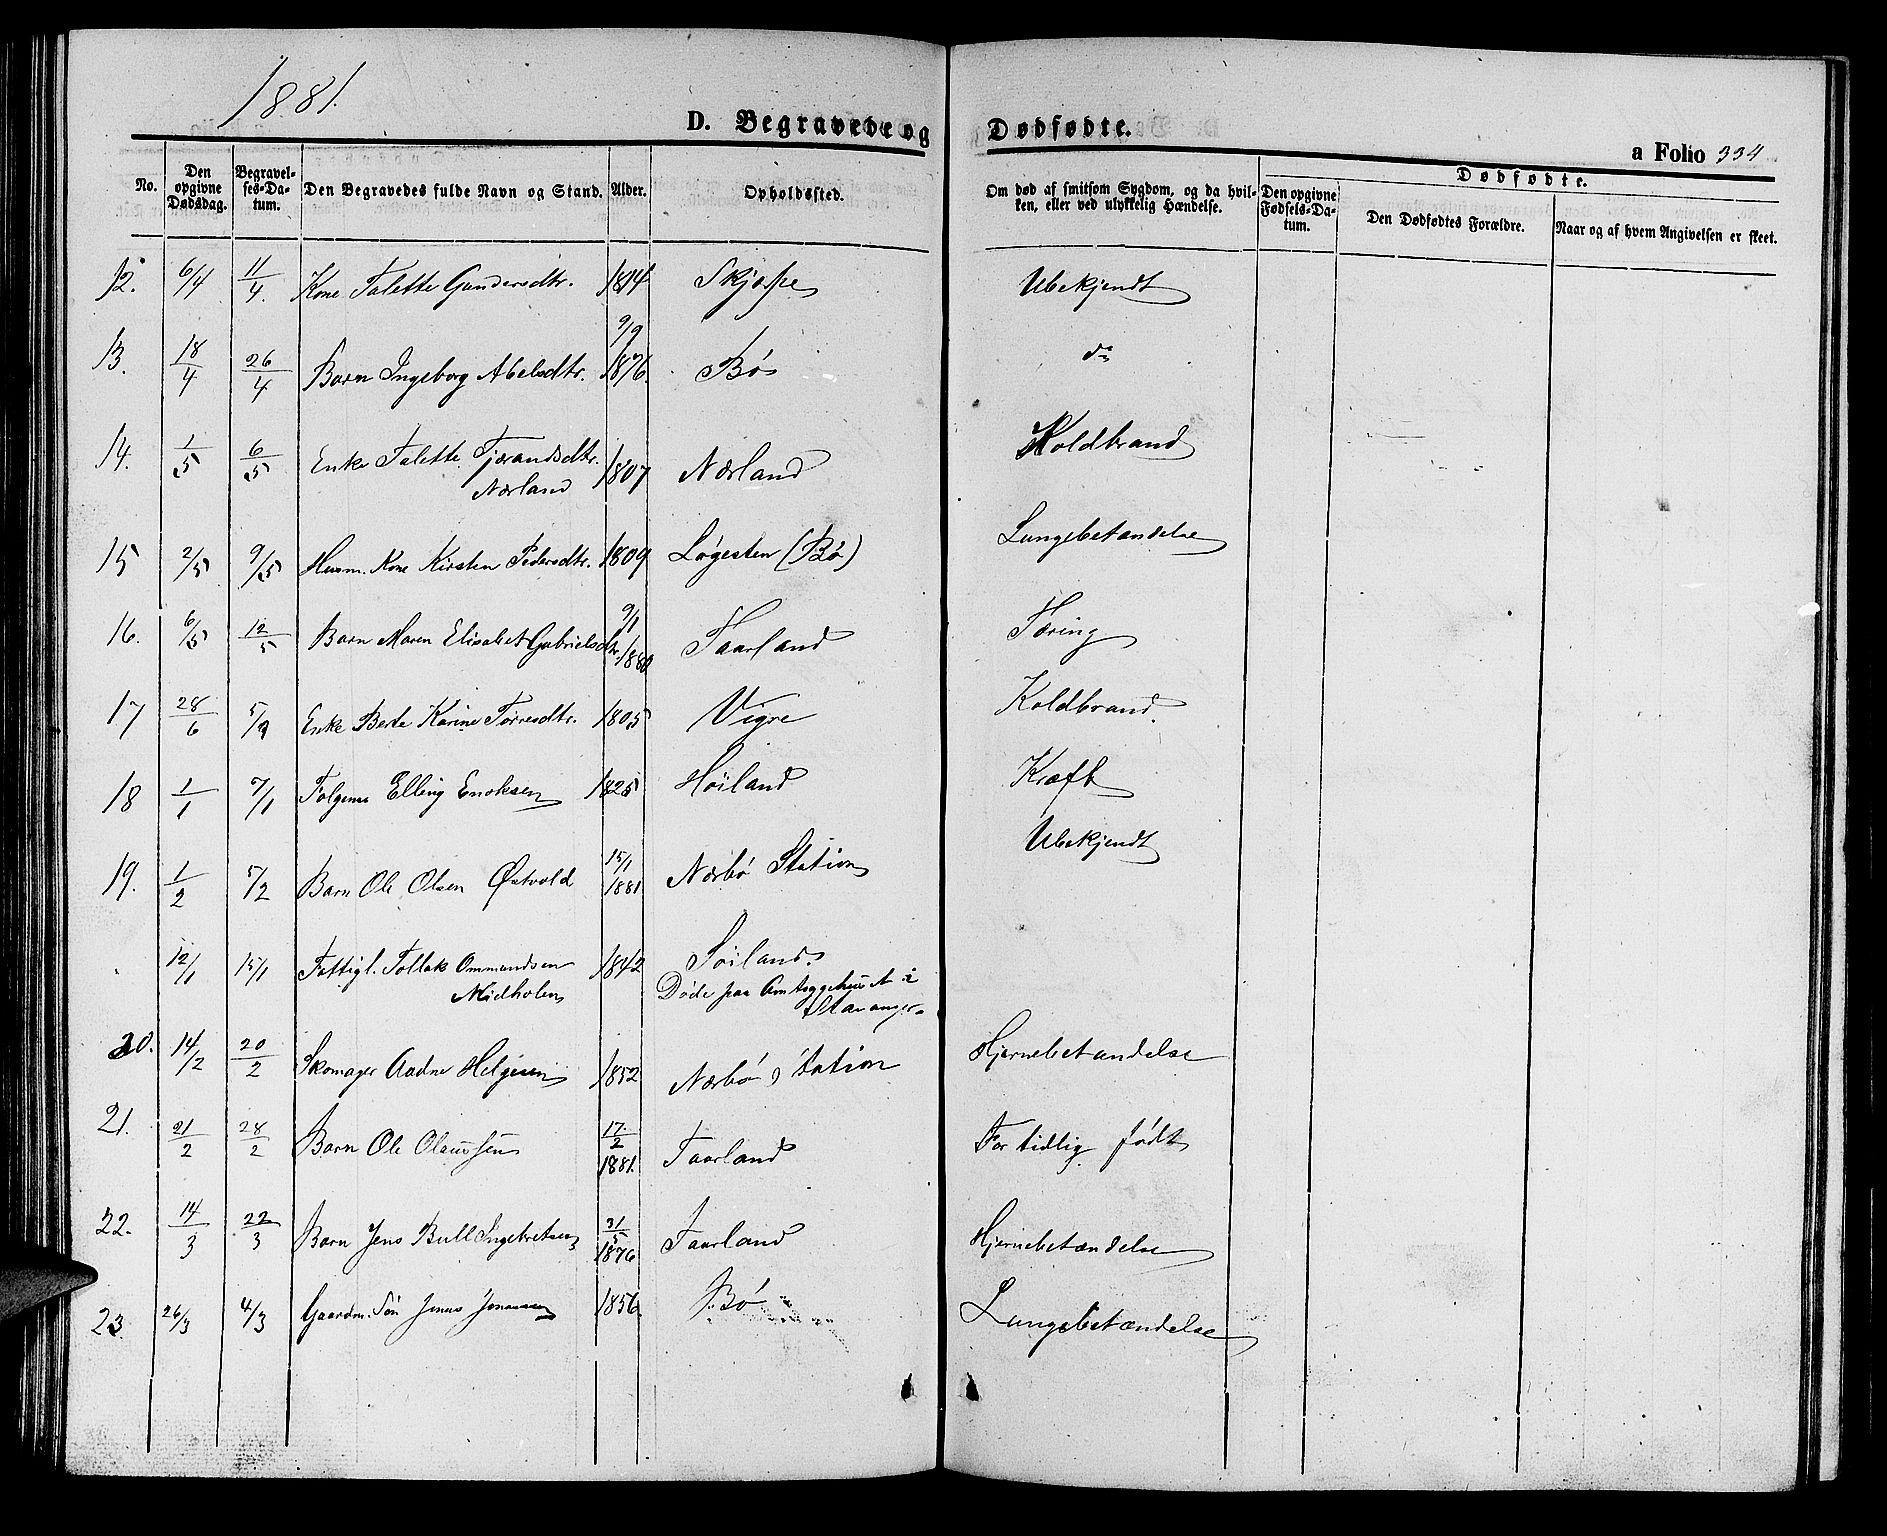 1881.
D. Begravede og Dødfødte.
a Folio 334
No. Den opgivne Dødsdag. Begravelses-Datum. Den Begravedes fulde Navn og Stand. Alder. Opholdssted. Om død af smitsom Sygdom, og da hvilken, eller ved ulykkelig Hændelse. Dødfødte. Den opgivne Fødsels-Datum. Den Dødfødtes Forældre. Naar og af hvem Angivelsen er skeet.
12. 6/4 11/4. Kone Talette Gundersdtr. 1814 Skjærpe Ubekjendt
13. 18/4 26/4 Barn Ingeborg Abelsdtr. 9/9 1876. Bø do
14. 1/5 6/5 Enke Talette Tjerandsdtr. Nærland 1807 Nærland Koldbrand
15 2/5 9/5 Husm. Kone Kirsten Pedersdtr. 1809 Løgesten (Bø) Lungebetændelse
16. 6/5 12/5 Barn Maren Elisabet Gabrielsdtr. 9/1 1880 Taarland Tæring
17 28/6 5/9 Enke Berte Karine Torresdtr. 1805 Vigre Koldbrand.
18 1/1 7/1 Elling Enoksen 1825 Høiland Kræft
19. 1/2 7/2 Barn Ole Olsen Østvold 15/1 1881 Nærbø Station Ubekjendt
12/1 15/1 Fattigl. Tollak Ommundsen Midholen 1842 Søiland. Døde paa Amtsygehuset i Stavanger.
20. 14/2 20/2 Skomager Aadne Helgesen 1852 Nærbø Station Hjernebetændelse
21. 21/2 28/2 Barn Ole Olaussen 17./2 1881. Taarland For tidlig født
22. 14/3 22/3 Barn Jens Bull Ingebretsen 31/5 1876 Taarland Hjernebetændelse
23. 26/3 4/3 Gaardm. Søn Jonas Jonassen 1856. Bø Lungebetændelse